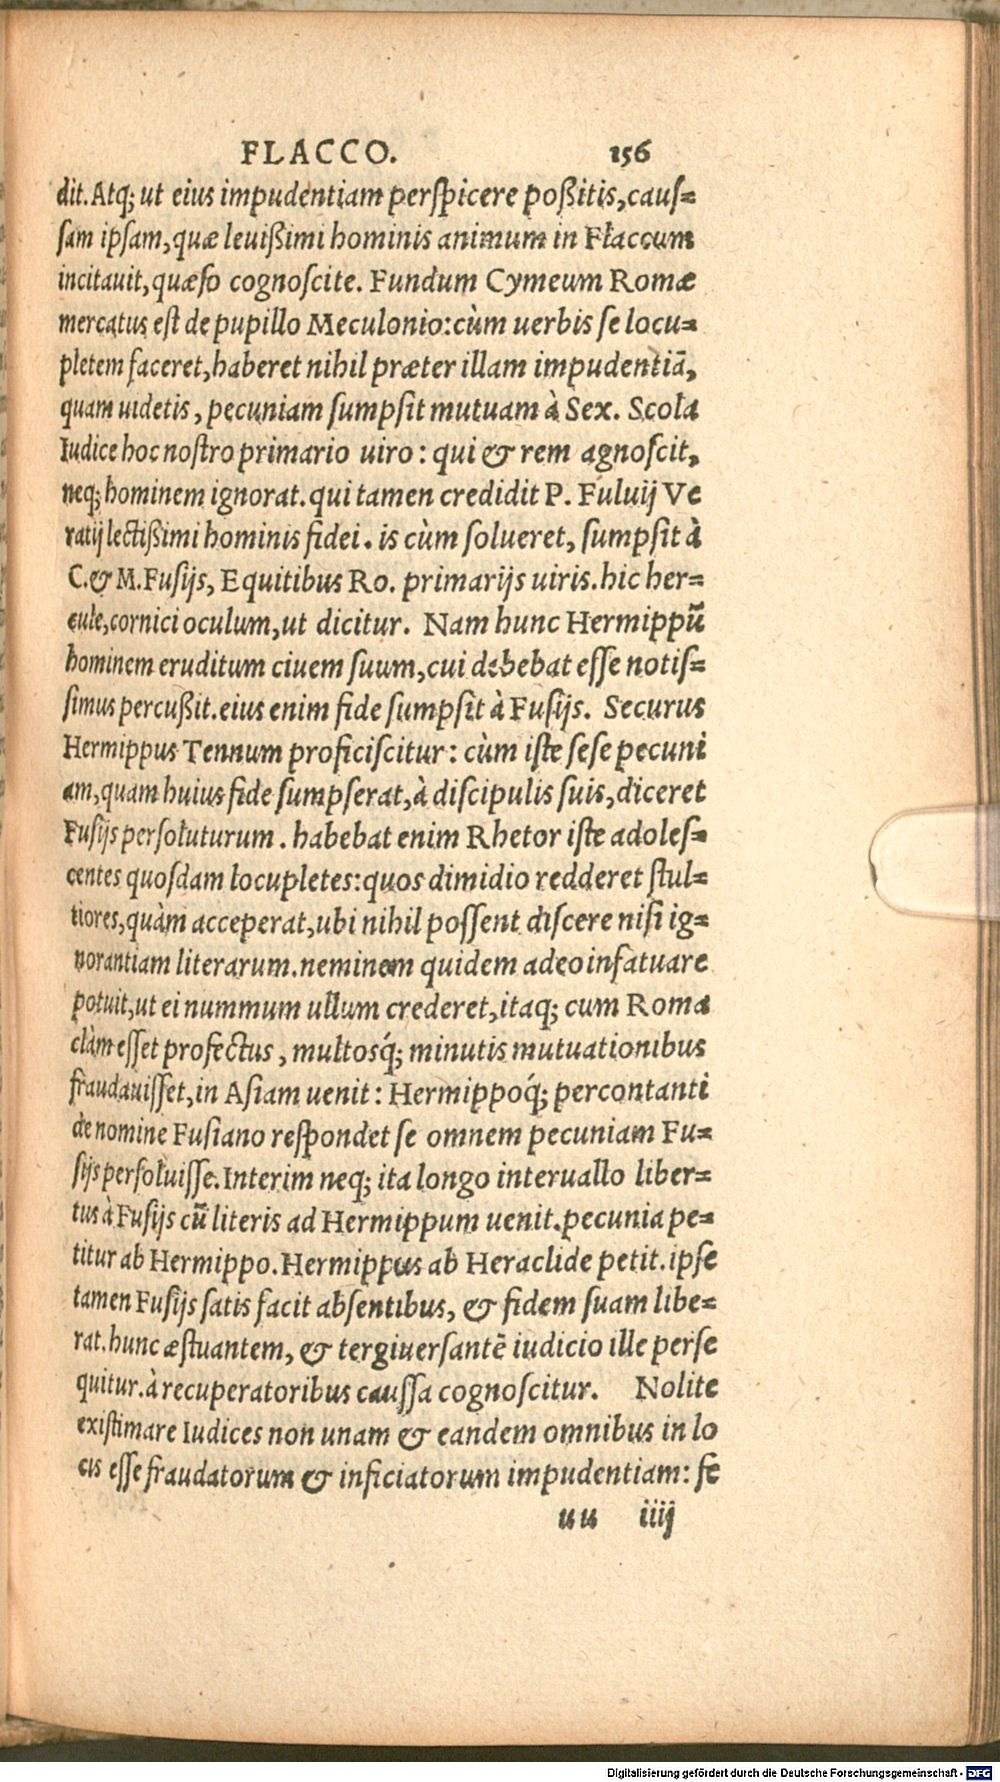 FLACCO. 156
dit. Atq; ut eius impudentiam perſpicere poßitis, cauſ=
ſam ipſam, quæ leuißimi hominis animum in Flaccum
incitauit, quæſo cognoſcite. Fundum Cymeum Romæ
mercatus eſt de pupillo Meculonio: cùm uerbis ſe locu=
pletem faceret, haberet nihil præter illam impudentiã,
quam uidetis, pecuniam ſumpſit mutuam à Sex. Scola
Iudice hoc noſtro primario uiro: qui & rem agnoſcit,
neq; hominem ignorat. qui tamen credidit P. Fuluij Ve
ratij lectißimi hominis fidei. is cùm ſolueret, ſumpſit à
C. & M. Fuſijs, Equitibus Ro. primarijs uiris. hic her=
cule, cornici oculum, ut dicitur. Nam hunc Hermippũ
hominem eruditum ciuem ſuum, cui debebat eſſe notiſ=
ſimus percußit. eius enim fide ſumpſit à Fuſijs. Securus
Hermippus Tennum proficiſcitur: cùm iſte ſeſe pecuni
am, quam huius fide ſumpſerat, à diſcipulis ſuis, diceret
Fuſijs perſoluturum. habebat enim Rhetor iſte adoleſ=
centes quoſdam locupletes: quos dimidio redderet ſtul=
tiores, quàm acceperat, ubi nihil poſſent diſcere niſi ig=
norantiam literarum. neminem quidem adeo infatuare
potuit, ut ei nummum ullum crederet, itaq; cum Roma
clàm eſſet profectus, multosq́; minutis mutuationibus
fraudauiſſet, in Aſiam uenit: Hermippoq́; percontanti
de nomine Fuſiano reſpondet ſe omnem pecuniam Fu=
ſijs perſoluiſſe. Interim neq; ita longo interuallo liber=
tus à Fuſijs cũ literis ad Hermippum uenit. pecunia pe=
titur ab Hermippo. Hermippus ab Heraclide petit. ipſe
tamen Fuſijs ſatis facit abſentibus, & fidem ſuam libe=
rat. hunc æſtuantem, & tergiuerſantẽ iudicio ille perſe
quitur. à recuperatoribus cauſſa cognoſcitur. Nolite
exiſtimare Iudices non unam & eandem omnibus in lo
cis eſſe fraudatorum & inficiatorum impudentiam: fe
uu iiij
Digitalisierung gefördert durch die Deutsche Forschungsgemeinschaft - DFG